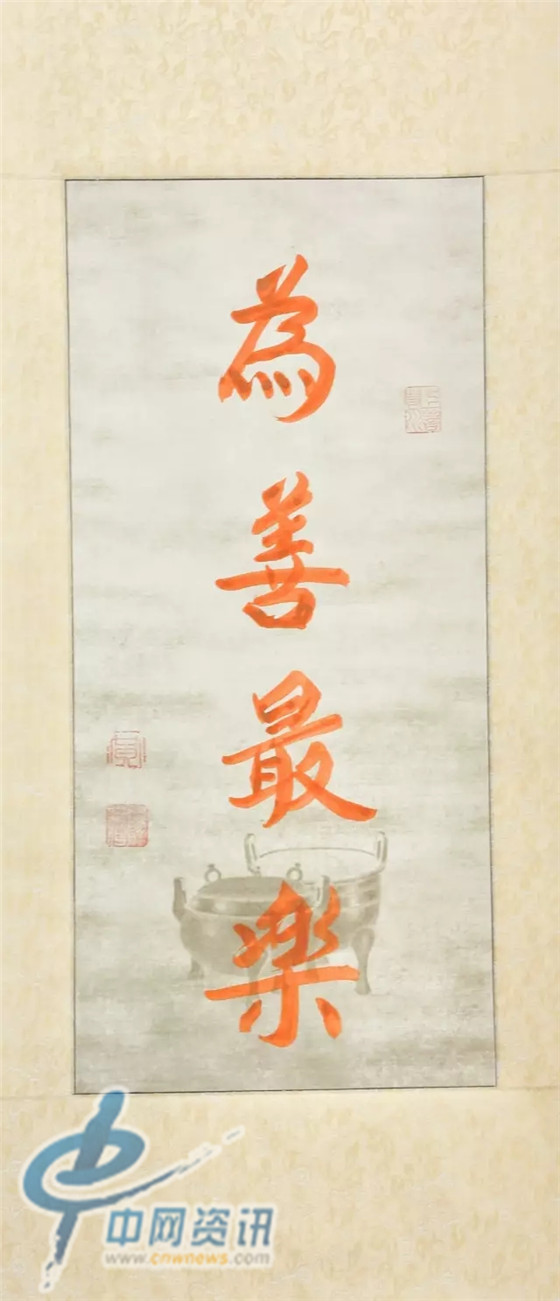 為善最楽
中网资讯
www.cnwnews.com